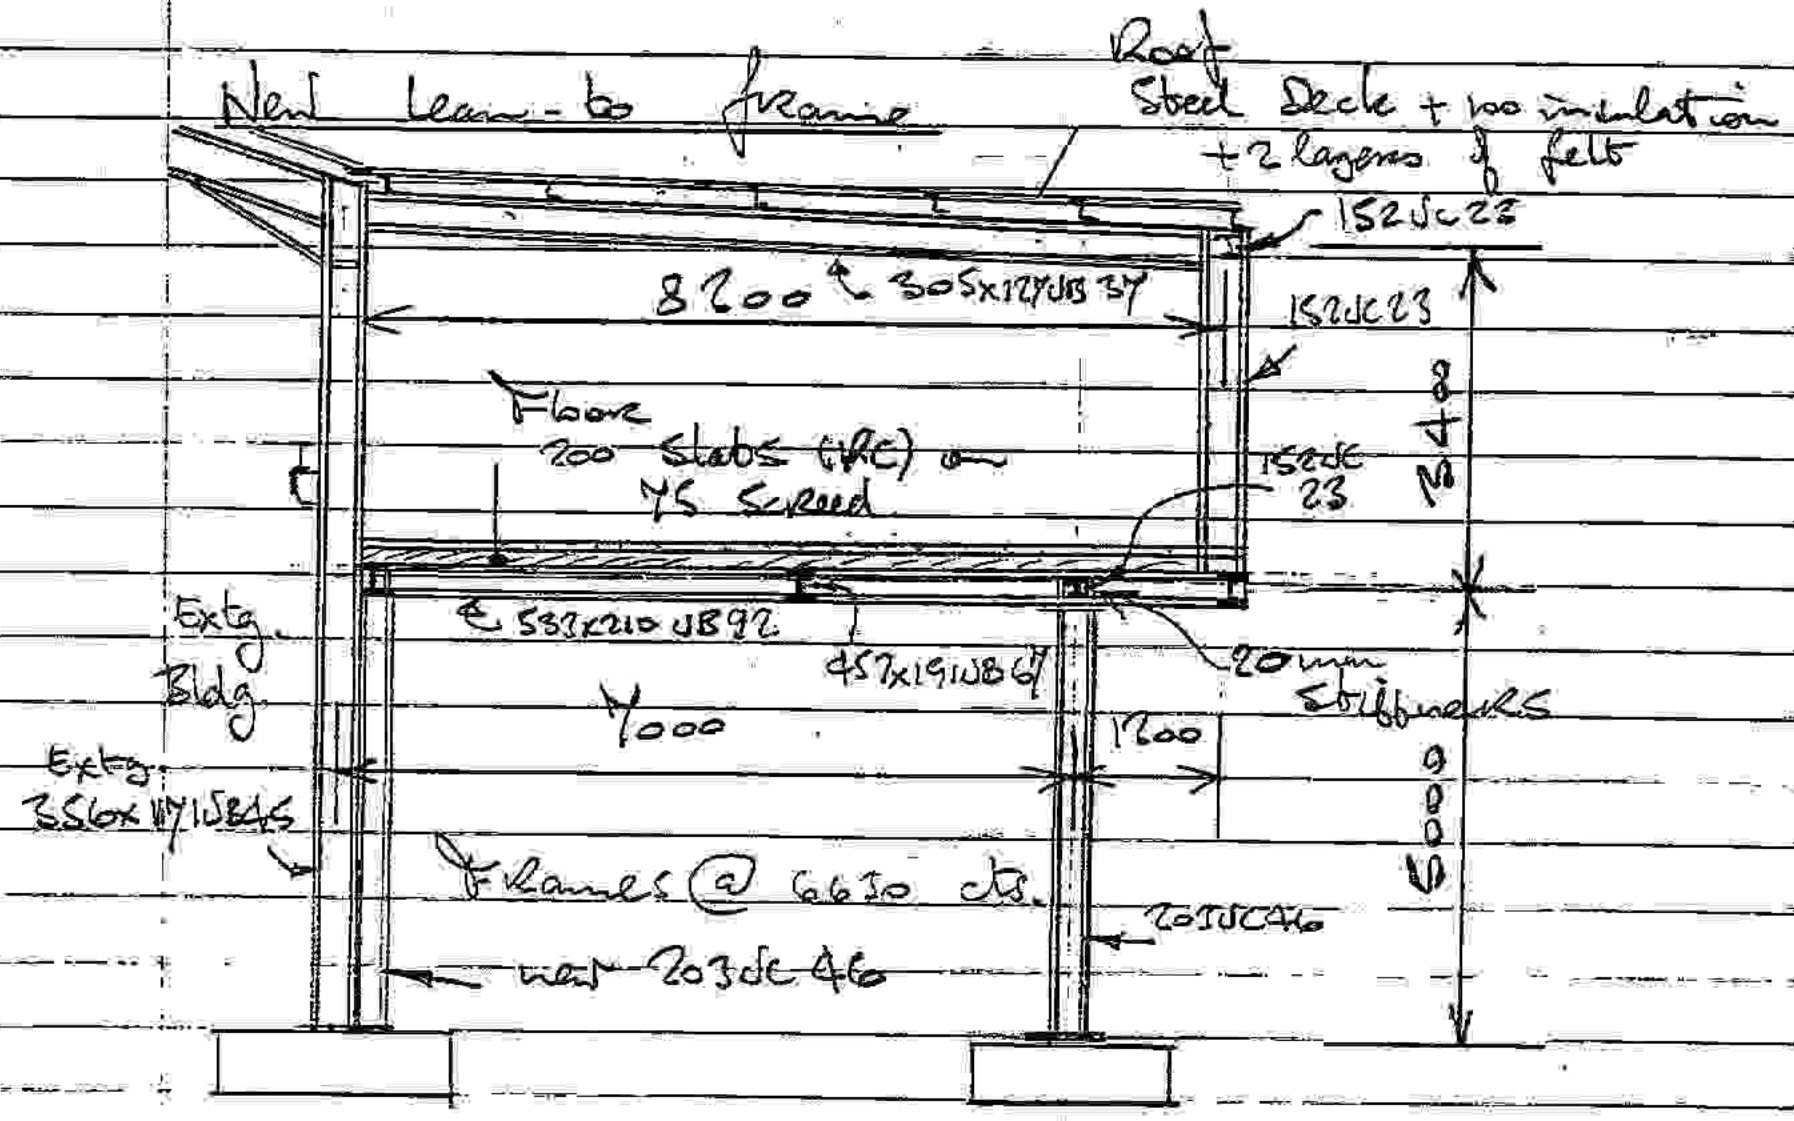 New lean-to frame
Roof
Steel Deck + 100 insulation
+ 2 layers of felt
152UC23
8200
305x127UB37
152UC23
3418
Floor
200 Slabs (RC) on
75 Screed
152UC
23
Extg.
Bldg.
533x210UB92
457x191UB67
20mm
Stiffeners
7000
1200
Extg.
356x171UB45
5089
Frames @ 6630 cts.
203UC46
new 203UC46